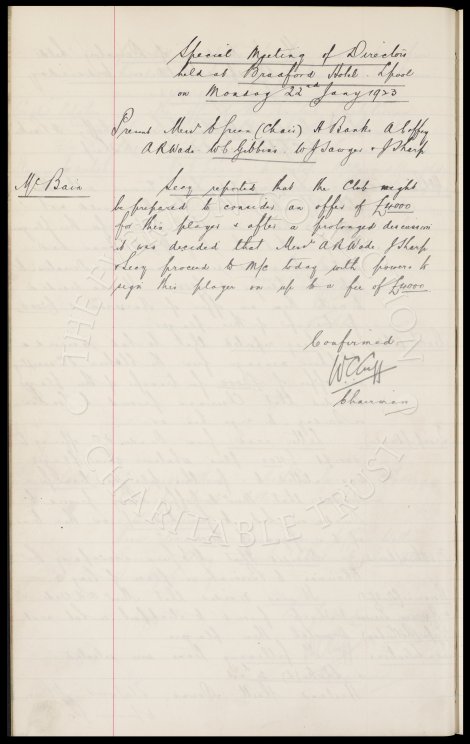 Special Meeting of Directors
held at Bradford Hotel L'pool
on Monday 22nd Jany 1923
Present Messrs E Green (Chair) H Banks A Coffey
A R Wade W C Gibbins W J Sawyer & J Sharp
Mc Bain
Secy reported that the Club might
be prepared to consider an offer of £4000
for this player & after a prolonged discussion
it was decided that Messrs A R Wade J Sharp
& Secy proceed to M/c today with powers to
sign this player on up to a fee of £4000
Confirmed
W. C. Cuff
Chairman
THE EVERTON COLLECTION
CHARITABLE TRUST
©